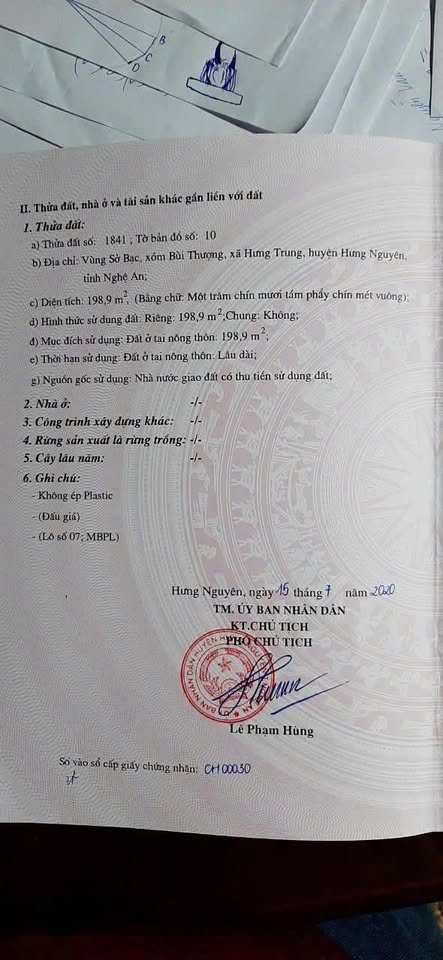 B
C
D
II. Thửa đất, nhà ở và tài sản khác gắn liền với đất
1. Thửa đất:
a) Thửa đất số: 1841 ; Tờ bản đồ số: 10
b) Địa chỉ: Vùng Sở Bạc, xóm Bùi Thượng, xã Hưng Trung, huyện Hưng Nguyên,
tỉnh Nghệ An;
c) Diện tích: 198,9 m², (Bằng chữ: Một trăm chín mươi tám phẩy chín mét vuông);
d) Hình thức sử dụng đất: Riêng: 198,9 m²;Chung: Không;
đ) Mục đích sử dụng: Đất ở tại nông thôn: 198,9 m²;
e) Thời hạn sử dụng: Đất ở tại nông thôn: Lâu dài;
g) Nguồn gốc sử dụng: Nhà nước giao đất có thu tiền sử dụng đất;
2. Nhà ở: -/-
3. Công trình xây dựng khác: -/-
4. Rừng sản xuất là rừng trồng: -/-
5. Cây lâu năm: -/-
6. Ghi chú:
- Không ép Plastic
- (Đấu giá)
- (Lô số 07; MBPL)
Hưng Nguyên, ngày 15 tháng 7 năm 2020
TM. ỦY BAN NHÂN DÂN
KT.CHỦ TỊCH
PHÓ CHỦ TỊCH
Lê Phạm Hùng
Số vào sổ cấp giấy chứng nhận: CH00030